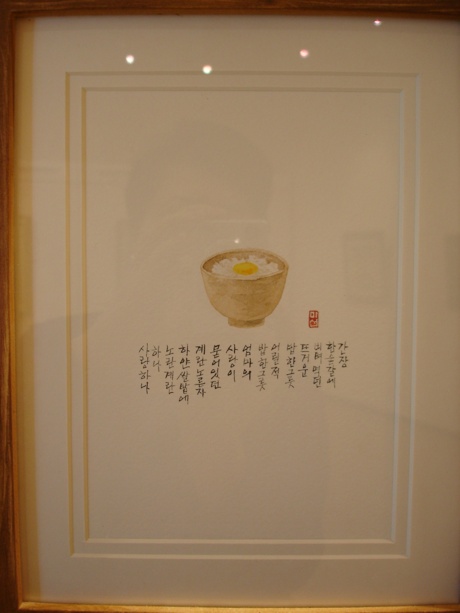 간장
한숟갈에
비벼먹던
뜨거운
밥한그릇
어릴적
밥한그릇
엄마의
사랑이
묻어있던
계란노른자
하얀쌀밥에
노란계란
하나
사랑하나